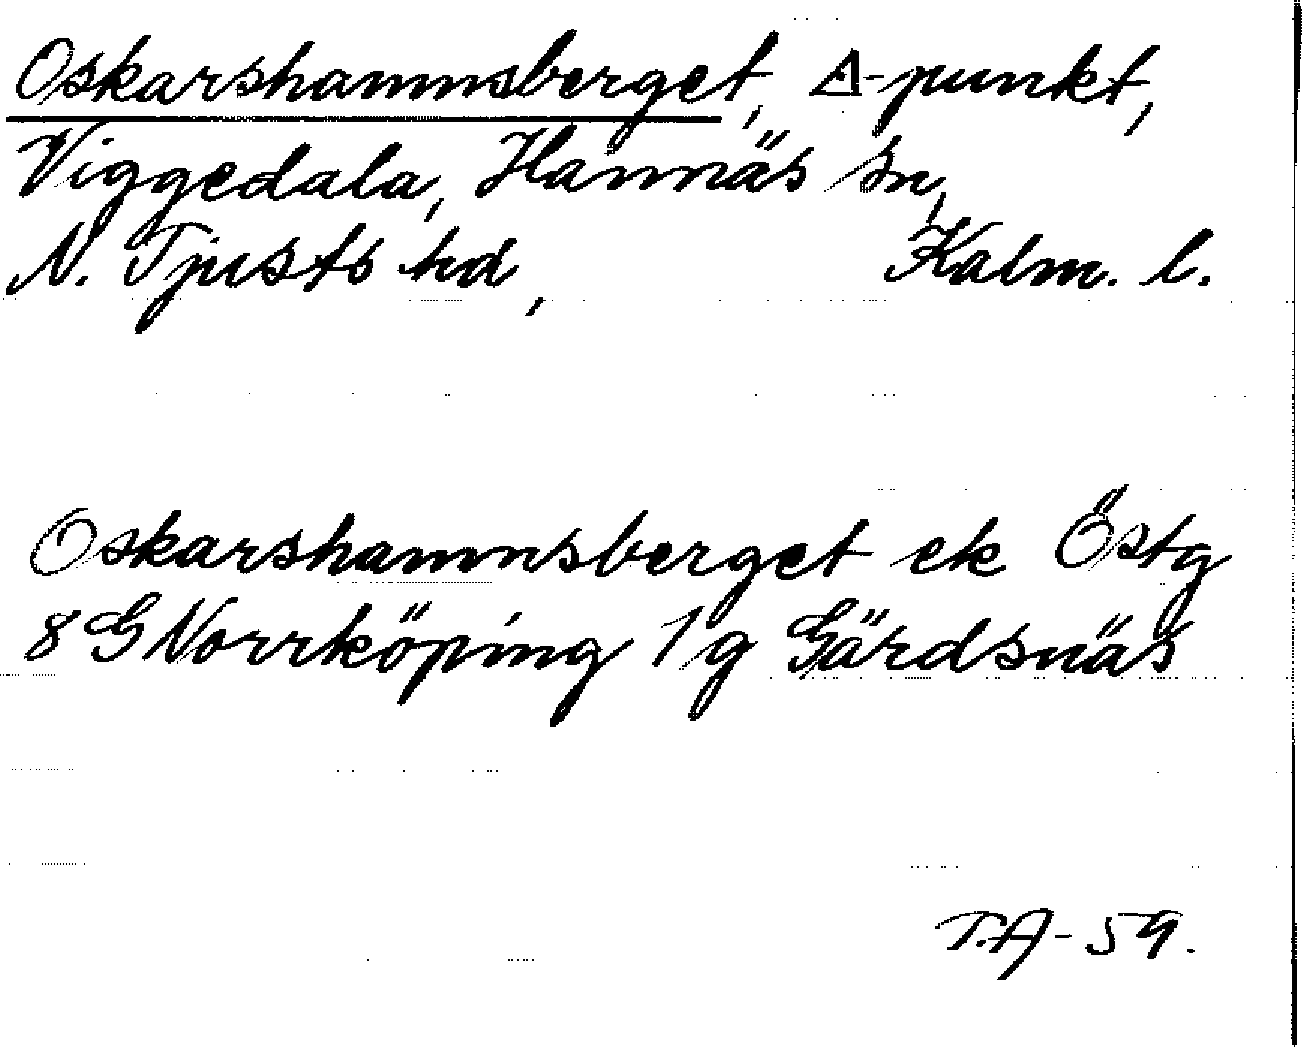 Oskarshamnsberget, △-punkt,
Viggedala, Hannäs sn,
N. Tjusts hd, Kalm. l.
Oskarshamnsberget ek Östg
8 G Norrköping 1 g Gärdsnäs
T.A-59.